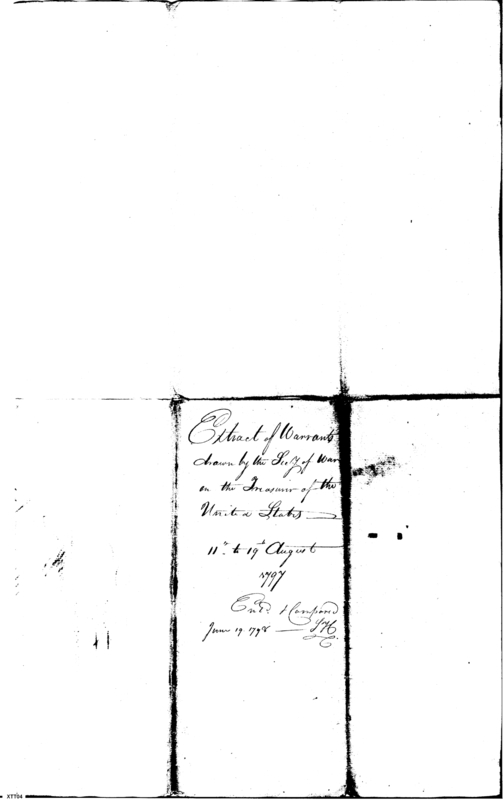 Extract of Warrants
drawn by the Secy. of War
on the Treasurer of the
United States
11th to 19th August
1797
Entd. & Compared
June 19 1798
XTT04